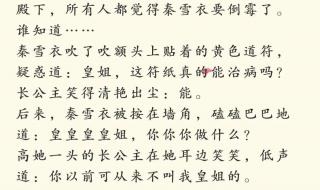 殿下，所有人都觉得秦雪衣要倒霉了。
谁知道……
秦雪衣吹了吹额头上贴着的黄色道符，
疑惑道：皇姐，这符纸真的能治病吗？
长公主笑得清艳出尘：能。
后来，秦雪衣被按在墙角，磕磕巴巴地
道：皇皇皇皇姐，你你你你做什么？
高她一头的长公主在她耳边笑笑，低声
道：你以前可从来不叫我皇姐的。